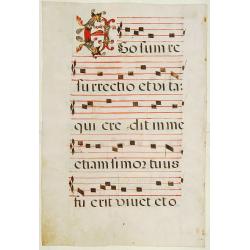 Ego sum re
surrectio et vita:
qui cre dit in me
etiam si mortuus
fu erit vivet et o